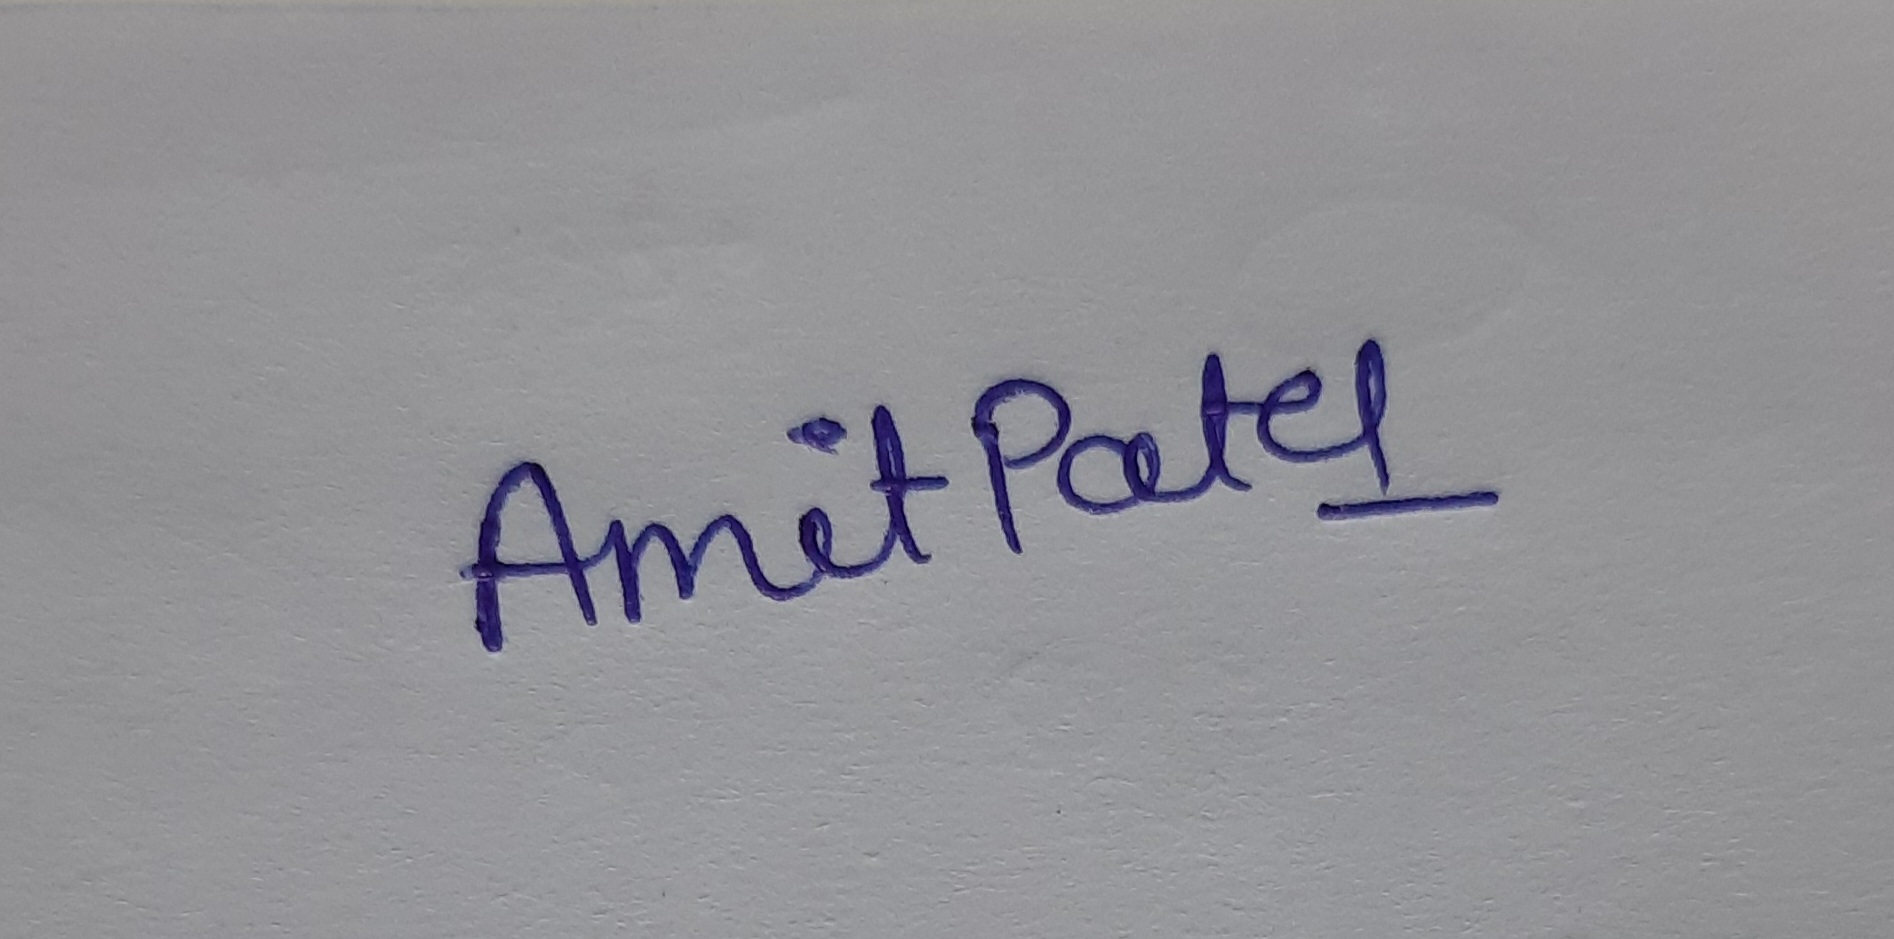 Amit Patel